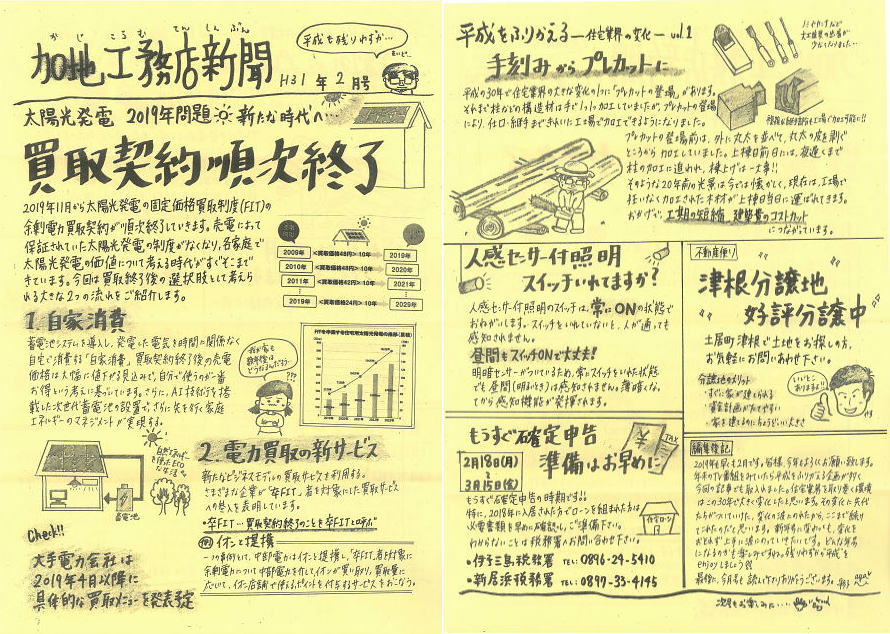 かじこうむてんしんぶん
加地工務店新聞
平成も残りわずか…
H31年2月号
太陽光発電 2019年問題 新たな時代へ…
買取契約順次終了
2019年11月から太陽光発電の固定価格買取制度(FIT)の
余剰電力買取契約が順次終了していきます。売電によって
保証されていた太陽光発電の制度がなくなり、各家庭で
太陽光発電の価値について考える時代がすぐそこまで
きています。今回は買取終了後の選択肢として考えら
れる大きな2つの流れをご紹介します。
2009年 <買取価格48円> 10年 2019年
2010年 <買取価格48円> 10年 2020年
2011年 <買取価格42円> 10年 2021年
2019年 <買取価格24円> 10年 2029年
1.自家消費
蓄電池システムを導入し、発電した電気を時間に関係なく
自宅で消費する「自家消費」。買取契約終了後の売電
価格は大幅に値下がる見込みで、自分で使うのが一番
お得という考えに基づいています。さらに、AI技術を搭
載した次世代蓄電池の設置で、さらに先を行く家庭
エネルギーのマネジメントが実現する。
我が家も
数年後は
どうなるんだろう…
???
自然とお財布
を使ったECO
な生活
蓄電池
2.電力買取の新サービス
新たなビジネスモデルの買取サービスを利用する。
さまざまな企業が「卒FIT」者を対象にした買取サービス
への参入を表明しています。
・卒FIT…買取契約終了のことを卒FITと呼ぶ
例 イオンと提携
一つの事例として、中部電力はイオンと提携し、「卒FIT」者を対象に
余剰電力について中部電力を介してイオンが買い取り、買取量に
応じて、イオン店舗で使えるポイントを付与するサービスをおこなう。
Check!!
大手電力会社は
2019年4月以降に
具体的な買取メニューを発表予定
平成をふりかえる―住宅業界の変化― vol.1
手刻みからプレカットに
平成の30年で住宅業界の大きな変化の1つに「プレカットの登場」があります。
それまで柱などの構造材は手で1つ1つ加工していましたが、プレカットの登場
により、仕口・継手まできれいに工場で加工できるようになりました。
プレカットの登場前は、外に丸太を並べて、丸太の皮を剥ぐ
ところから加工していました。上棟日前日には、夜遅くまで
柱の加工に追われ、棟上げは一大事!!
そのような20年前の光景は今では懐かしく、現在は、工場で
狂いなく加工された木材が上棟日当日に運ばれてきます。
おかげで、工期の短縮、建築費のコストカット
につながっています。
人感センサー付照明
スイッチいれてますか?
人感センサー付照明のスイッチは、常にONの状態で
おねがいします。スイッチをいれていないと、人が通っても
感知されません。
昼間もスイッチONで大丈夫!
明暗センサーがついているため、常にスイッチをいれた状態
でも昼間(明るいとき)は感知されません。薄暗くなっ
てから感知機能が発揮されます。
不動産便り
津根分譲地
好評分譲中
土居町津根で土地をお探しの方、
お気軽にお問いあわせ下さい。
分譲地のメリット
・すぐに家が建てられる
・資金計画が立てやすい
・家を建てるのにちょうどいい大きさ
いいとこ
あります!!
もうすぐ確定申告
準備はお早めに
TAX
2月18日(月)
3月15日(金)
もうすぐ確定申告の時期です!!
特に、2018年に入居された方でローンを組まれた方は
必要書類を早めに確認し、ご準備下さい。
わからないことは税務署へお問い合わせ下さい。
住宅ローン
・伊予三島税務署 TEL:0896-24-5410
・新居浜税務署 TEL:0897-33-4145
編集後記
2019年も早くも2月です。皆様、今年もよろしくお願い致します。
最後に、今月も読んでくださりありがとうございます。
次号もお楽しみに…